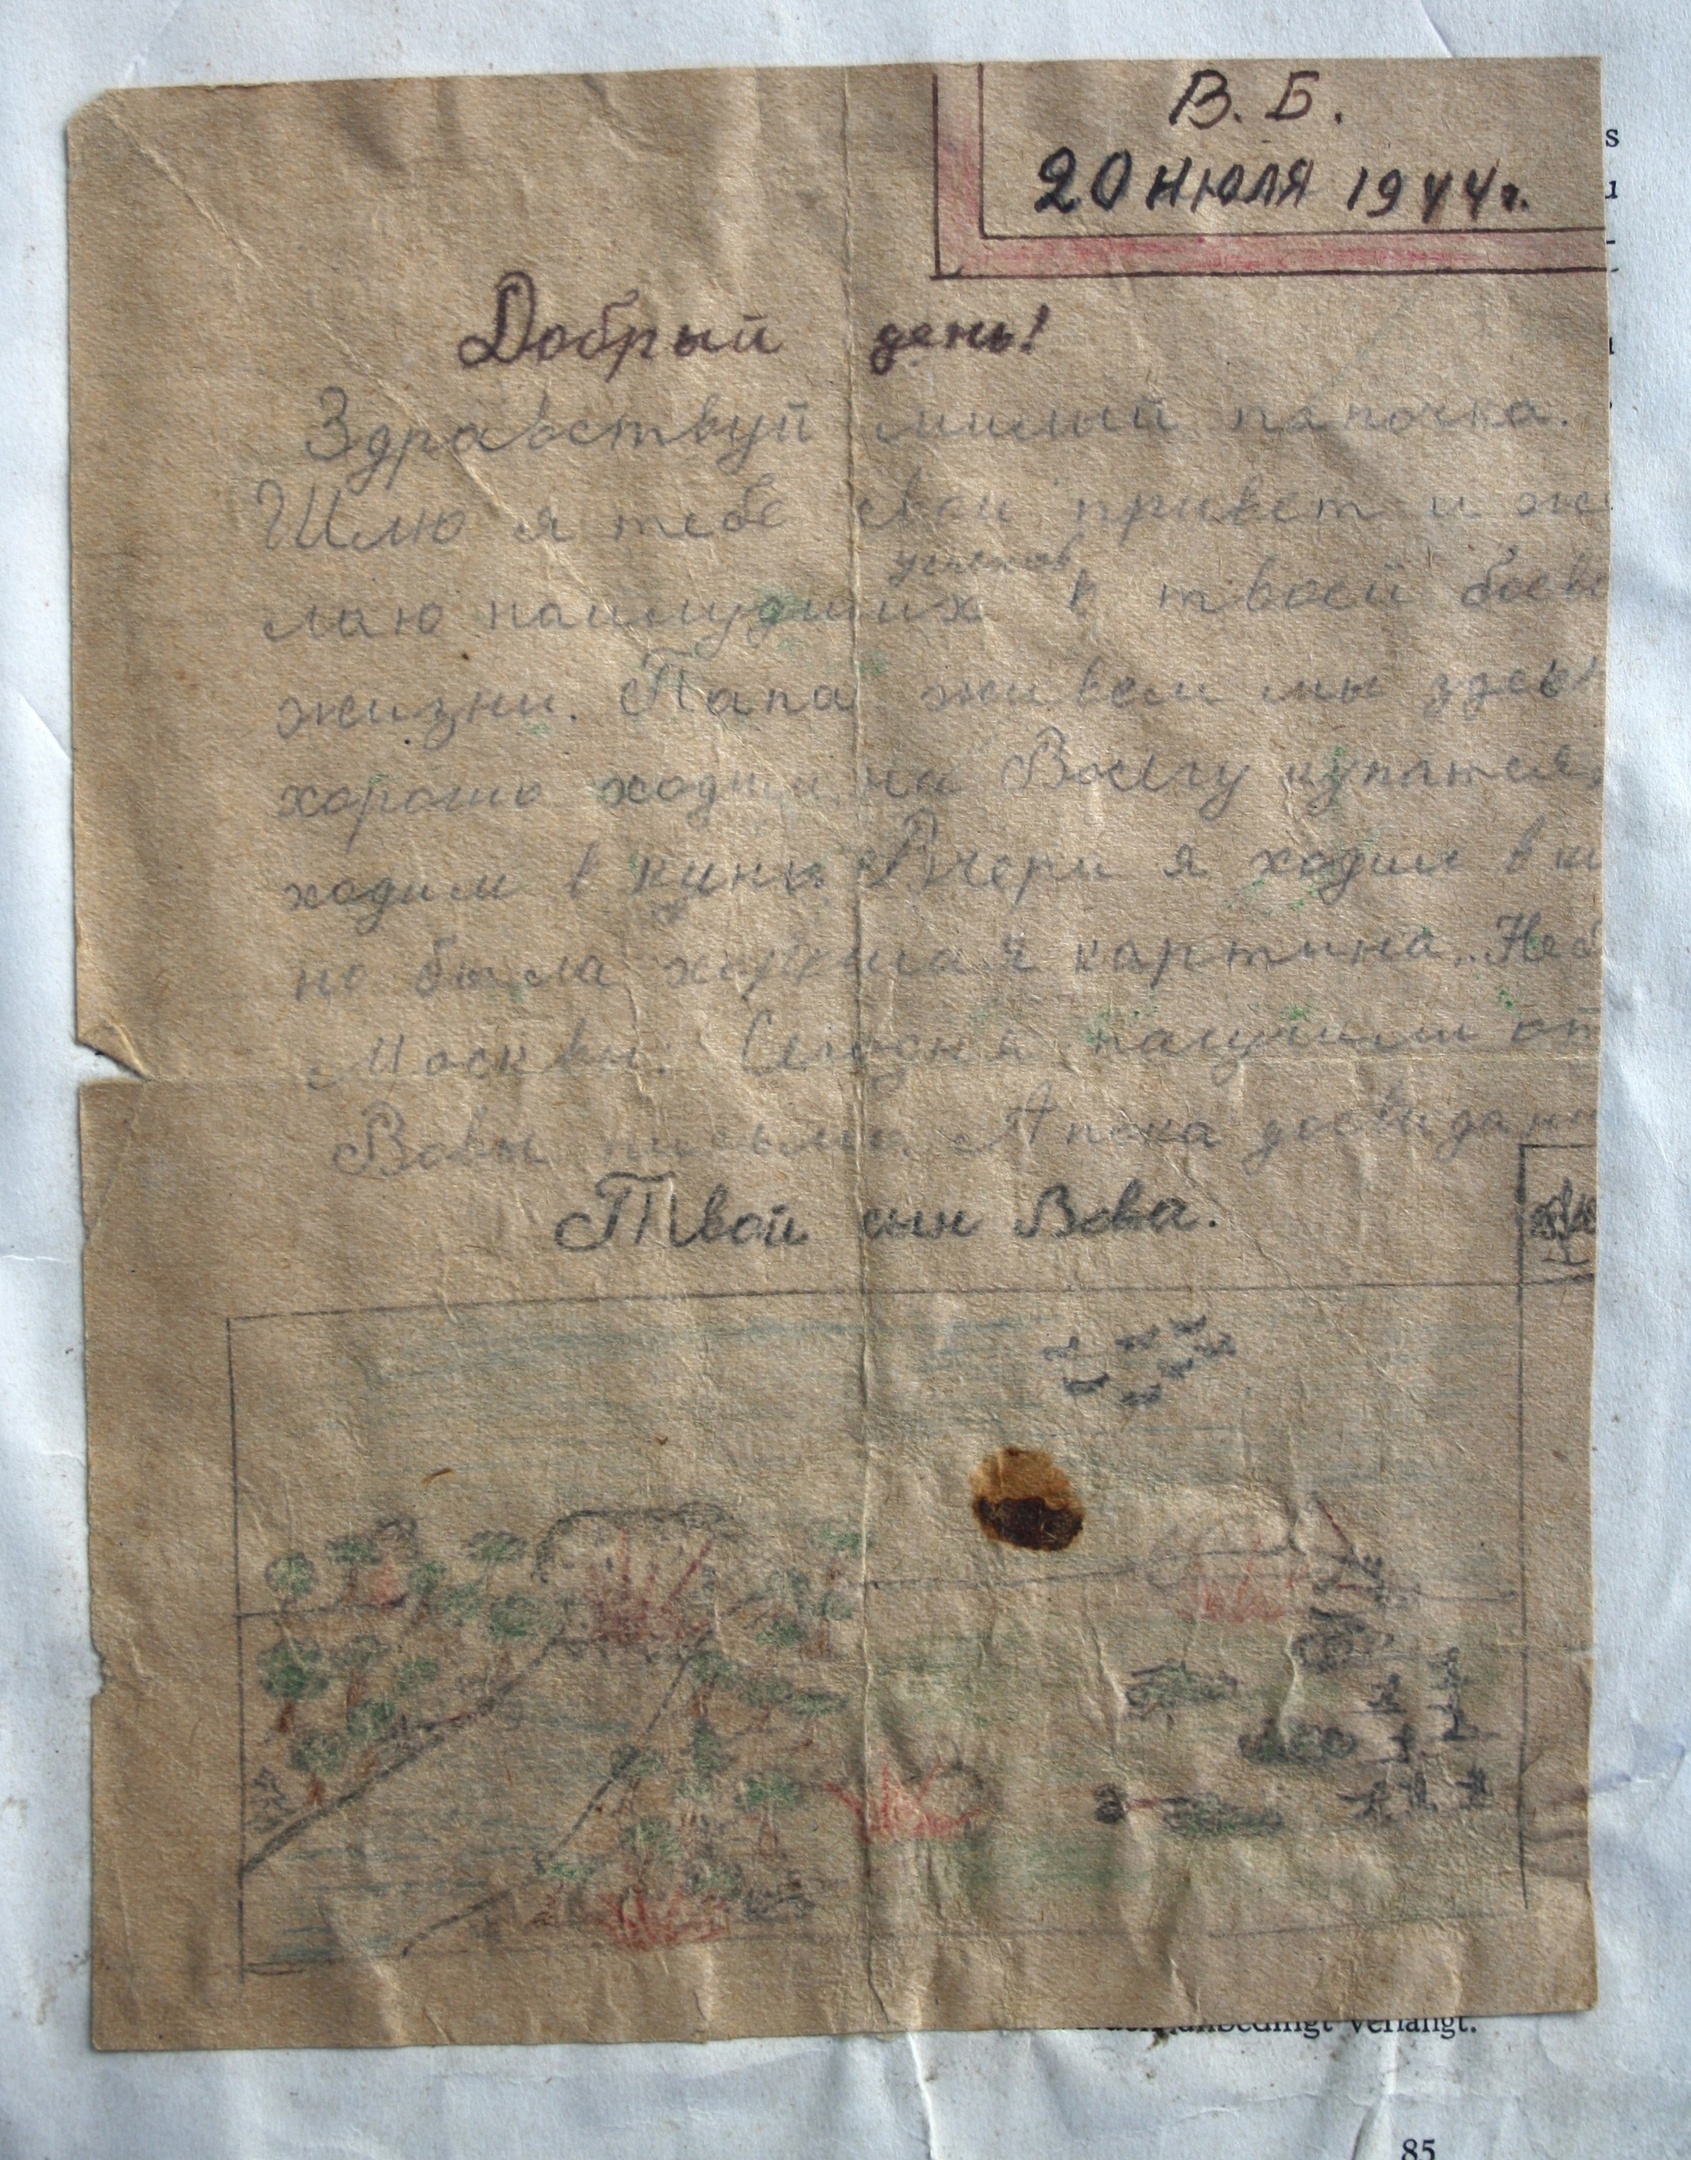 В. Б.
20 июля 1944 г.
Добрый день!
Здравствуй милый папочка.
Шлю я тебе свой привет и же
успехов
лаю наилудших в твоей боево
жизни. Папа живем мы здесь
хорошо ходим на Волгу купатся,
ходим в кино Вчера я ходил в ки
но была хорошая картина. Небо
Москвы. Сегодня палучили от
Вовы письмо. А пока досвидани
Твой сын Вова.
unbedingt verlangt.
85